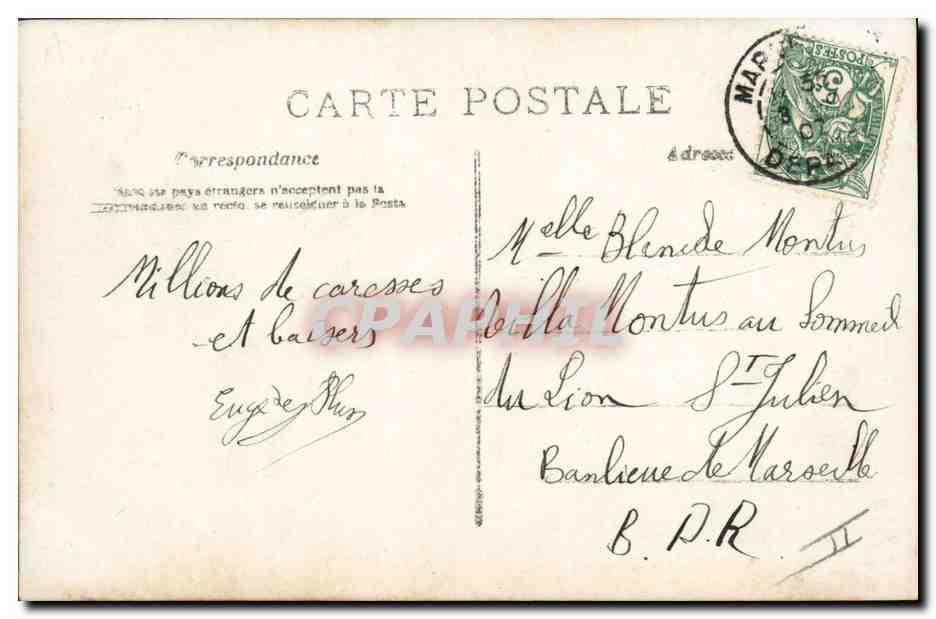 CARTE POSTALE
Correspondance
pays étrangers n'acceptent pas la
au recto. se renseigner à la Poste
Millions de caresses
et baisers
Adresse
Melle Blende Montus
Villa Montus au Sommeil
du Lion St Julien
Banlieue de Marseille
B. D. R.
II
POSTES
5
MAR
CPAPHIL